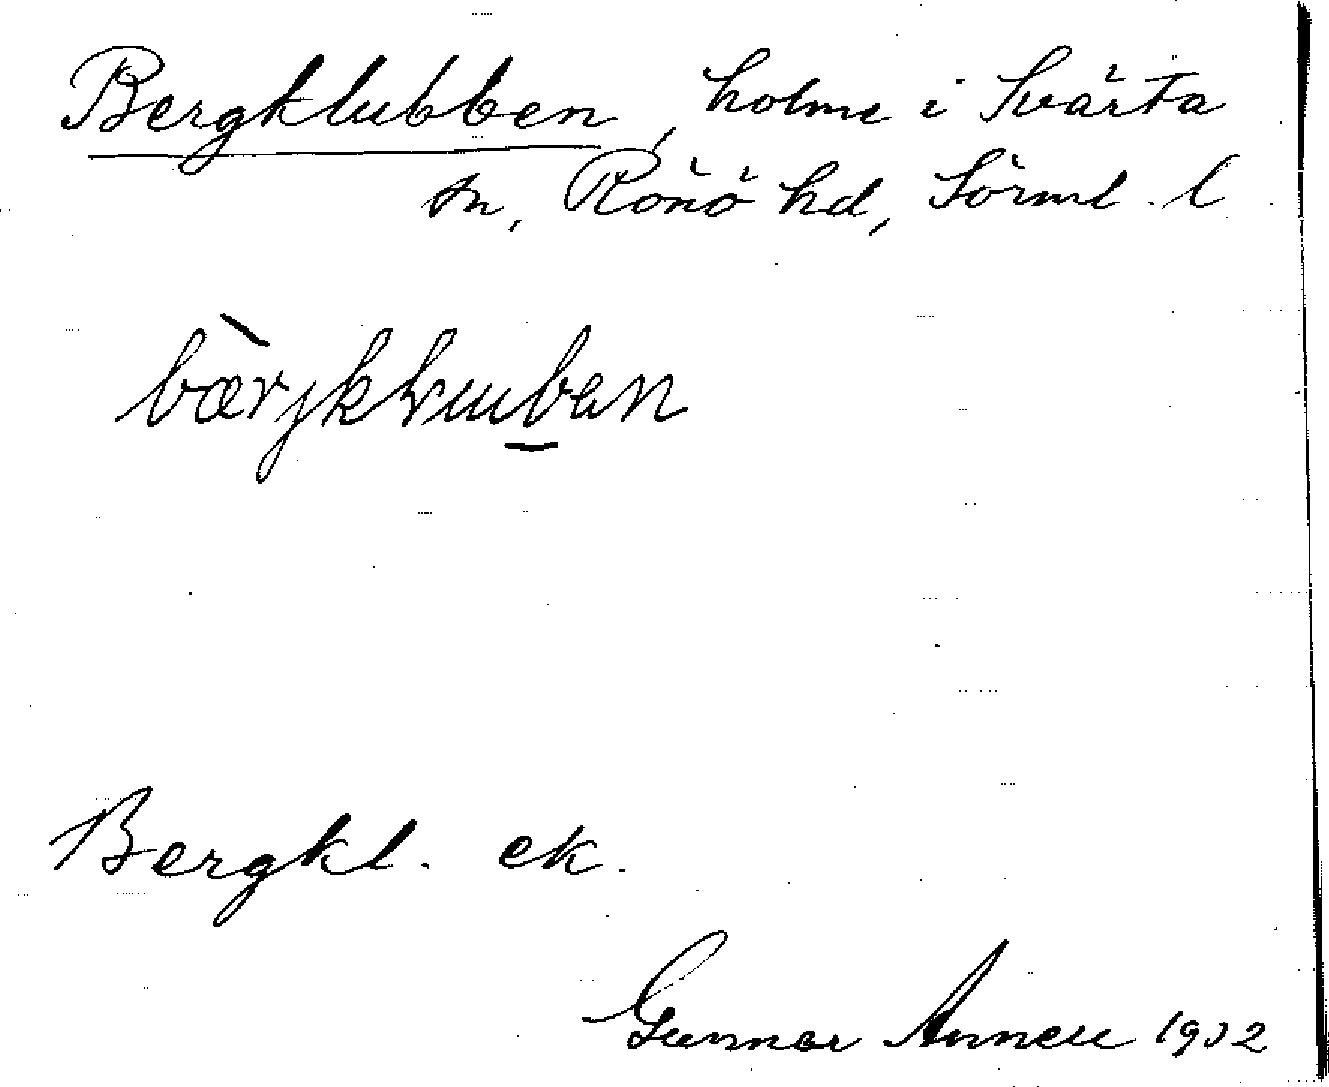 Bergklubben, holme i Svärta
sn, Rönö hd, Sörml. l
Bergkl. ek.
Gunnar Annell 1932